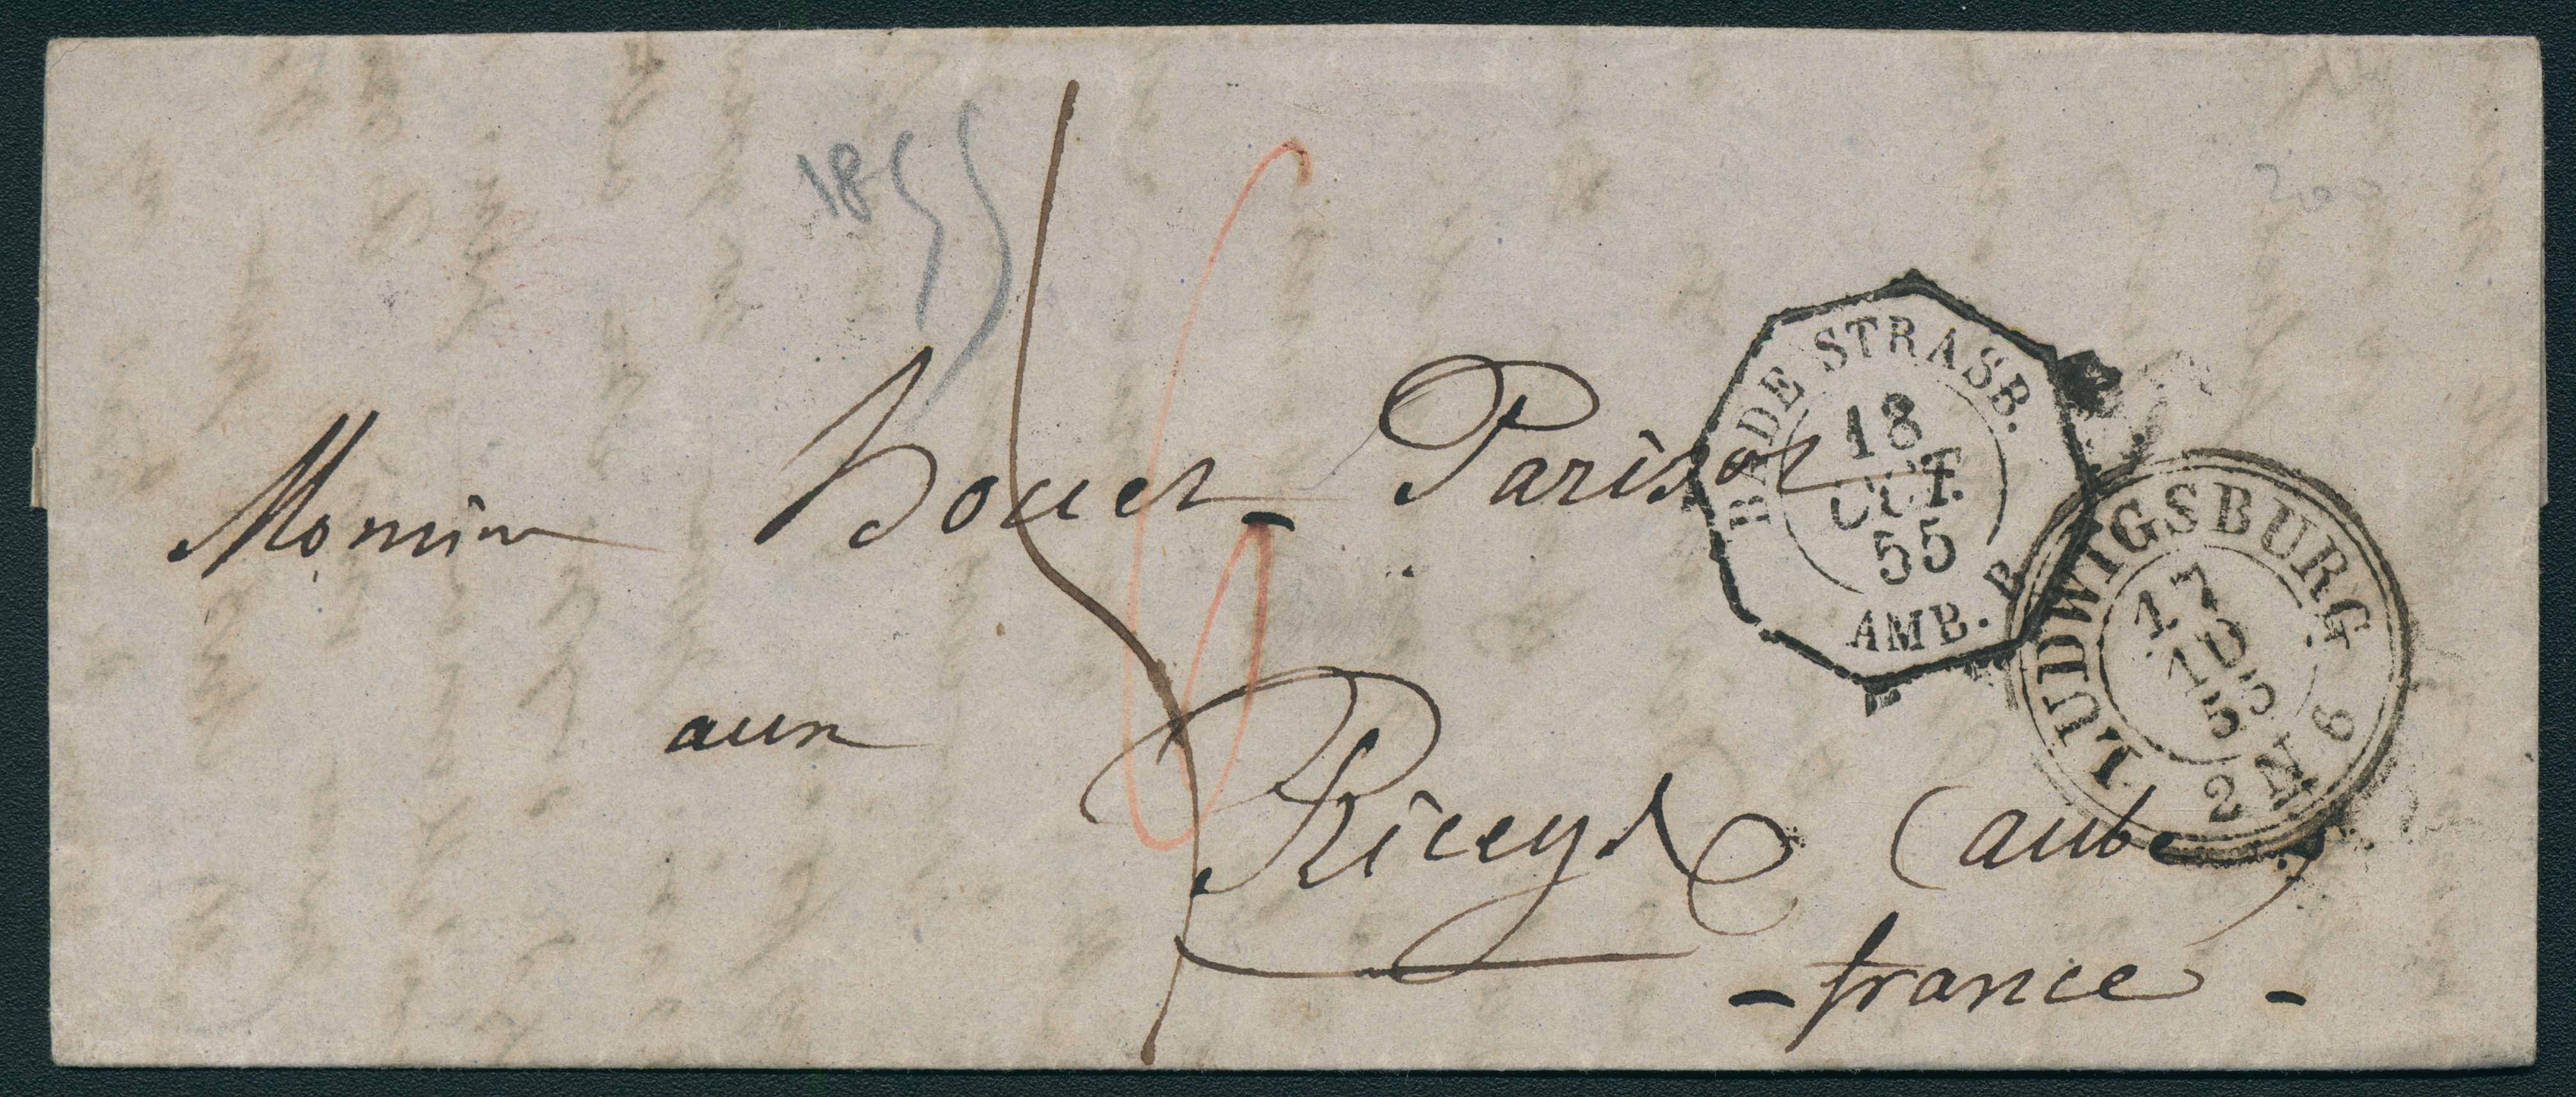 1855
200
Monsieur Bouer - Parisot
aux
Riceys (aube)
- france -
BADE STRASB.
18
OCT.
55
AMB. B
LUDWIGSBURG
17 10
1855